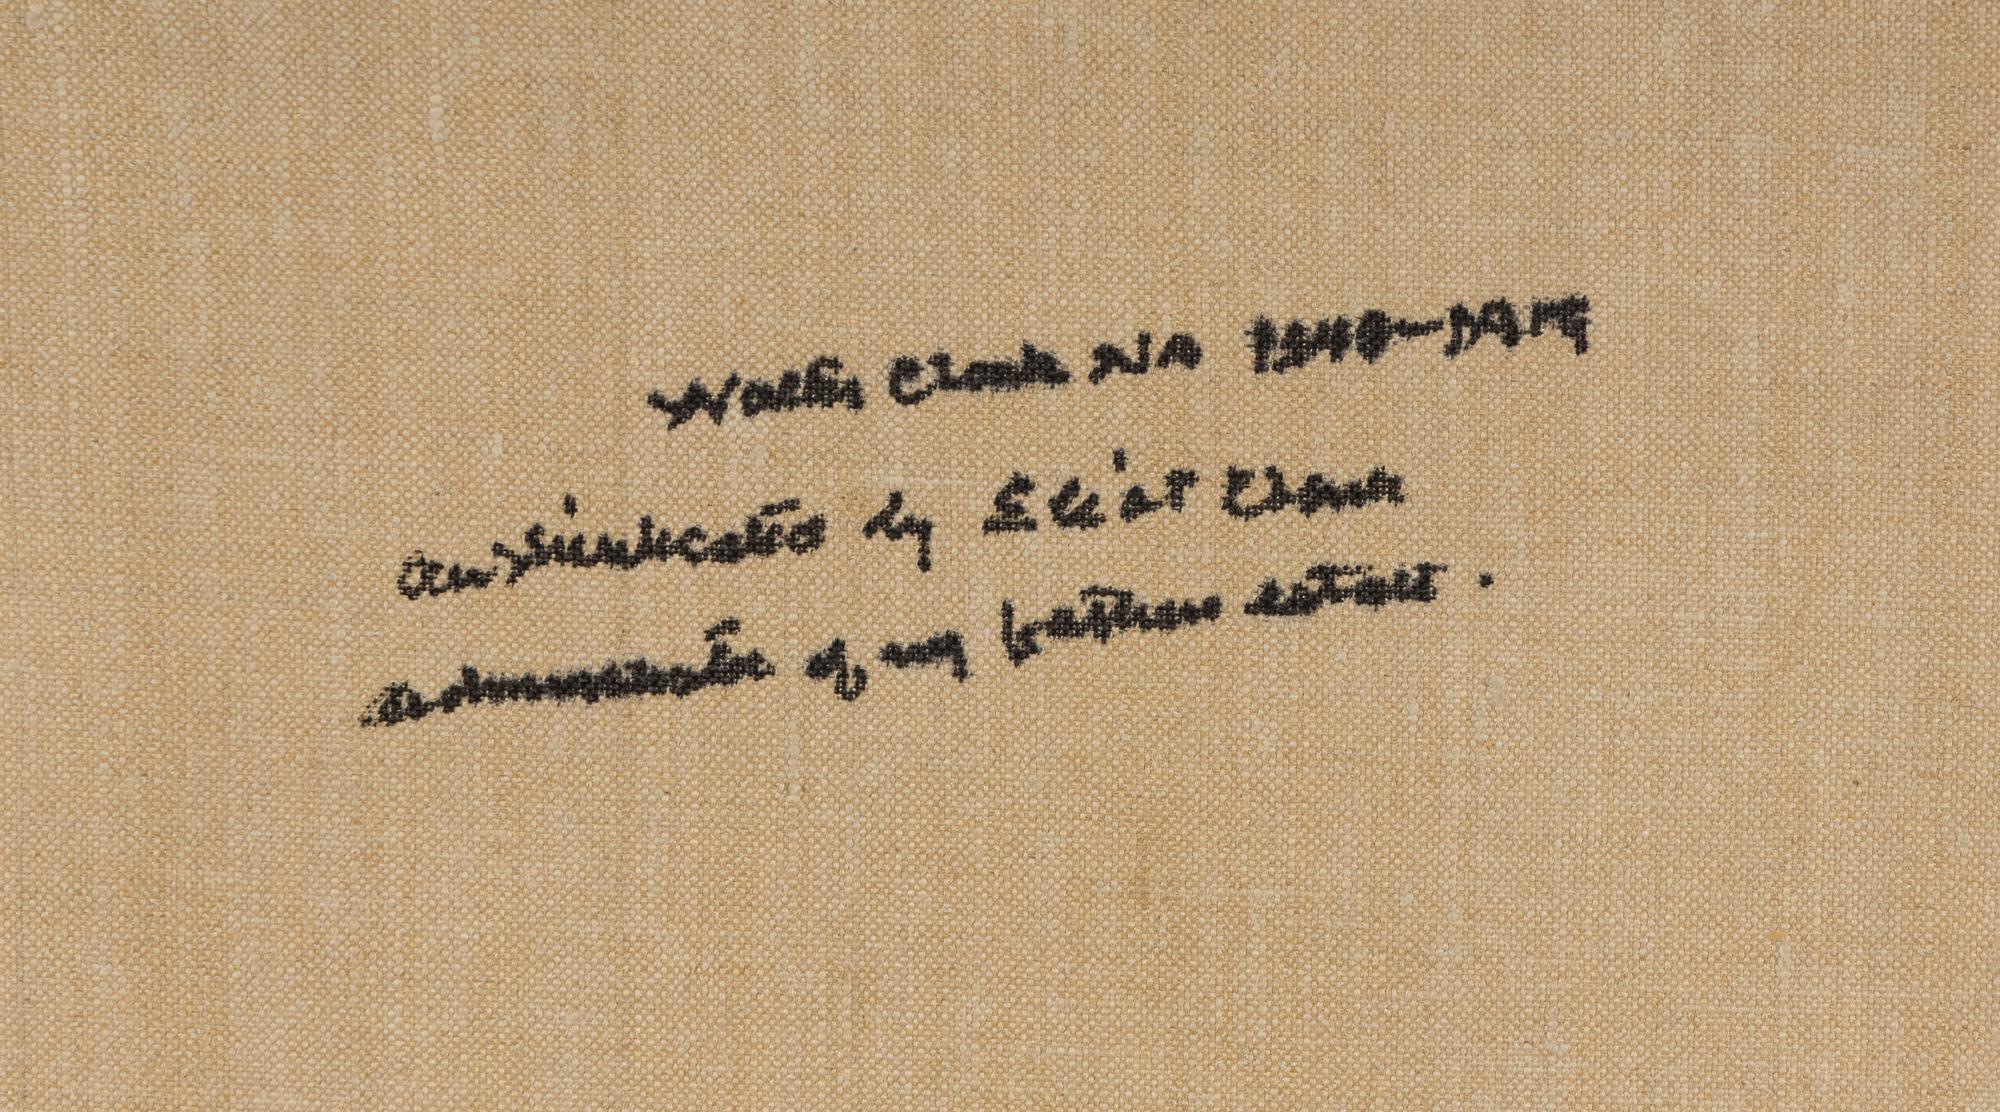 Walter Clark NA 1848-1917
authenticated by Eliot Clark
administrator of my fathers estate.